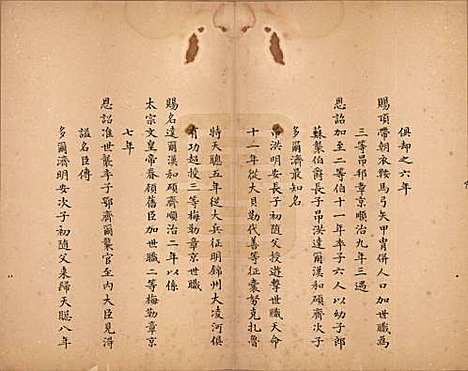 俱却之六年
賜頂帶朝衣鞍馬弓矢甲冑併人口加世職為
三等昂邦章京順治九年三遇
恩詔加至二等伯十一年卒子六人以幼子郎
蘇襲伯爵長子昂洪達爾漢和碩齊次子
多爾濟最知名
昂洪明安長子初隨父授遊擊世職天命
十一年從大貝勒代善等征囊努克扎魯
特天聰五年從大兵征明錦州大凌河俱
有功超授三等梅勒章京世職
賜名達爾漢和碩齊順治二年以係
太宗文皇帝眷領舊臣加世職二等梅勒章京
七年
恩詔准世襲卒子鄂齊爾襲官至內大臣見得
諡名臣傳
多爾濟明安次子初隨父來歸天聰八年